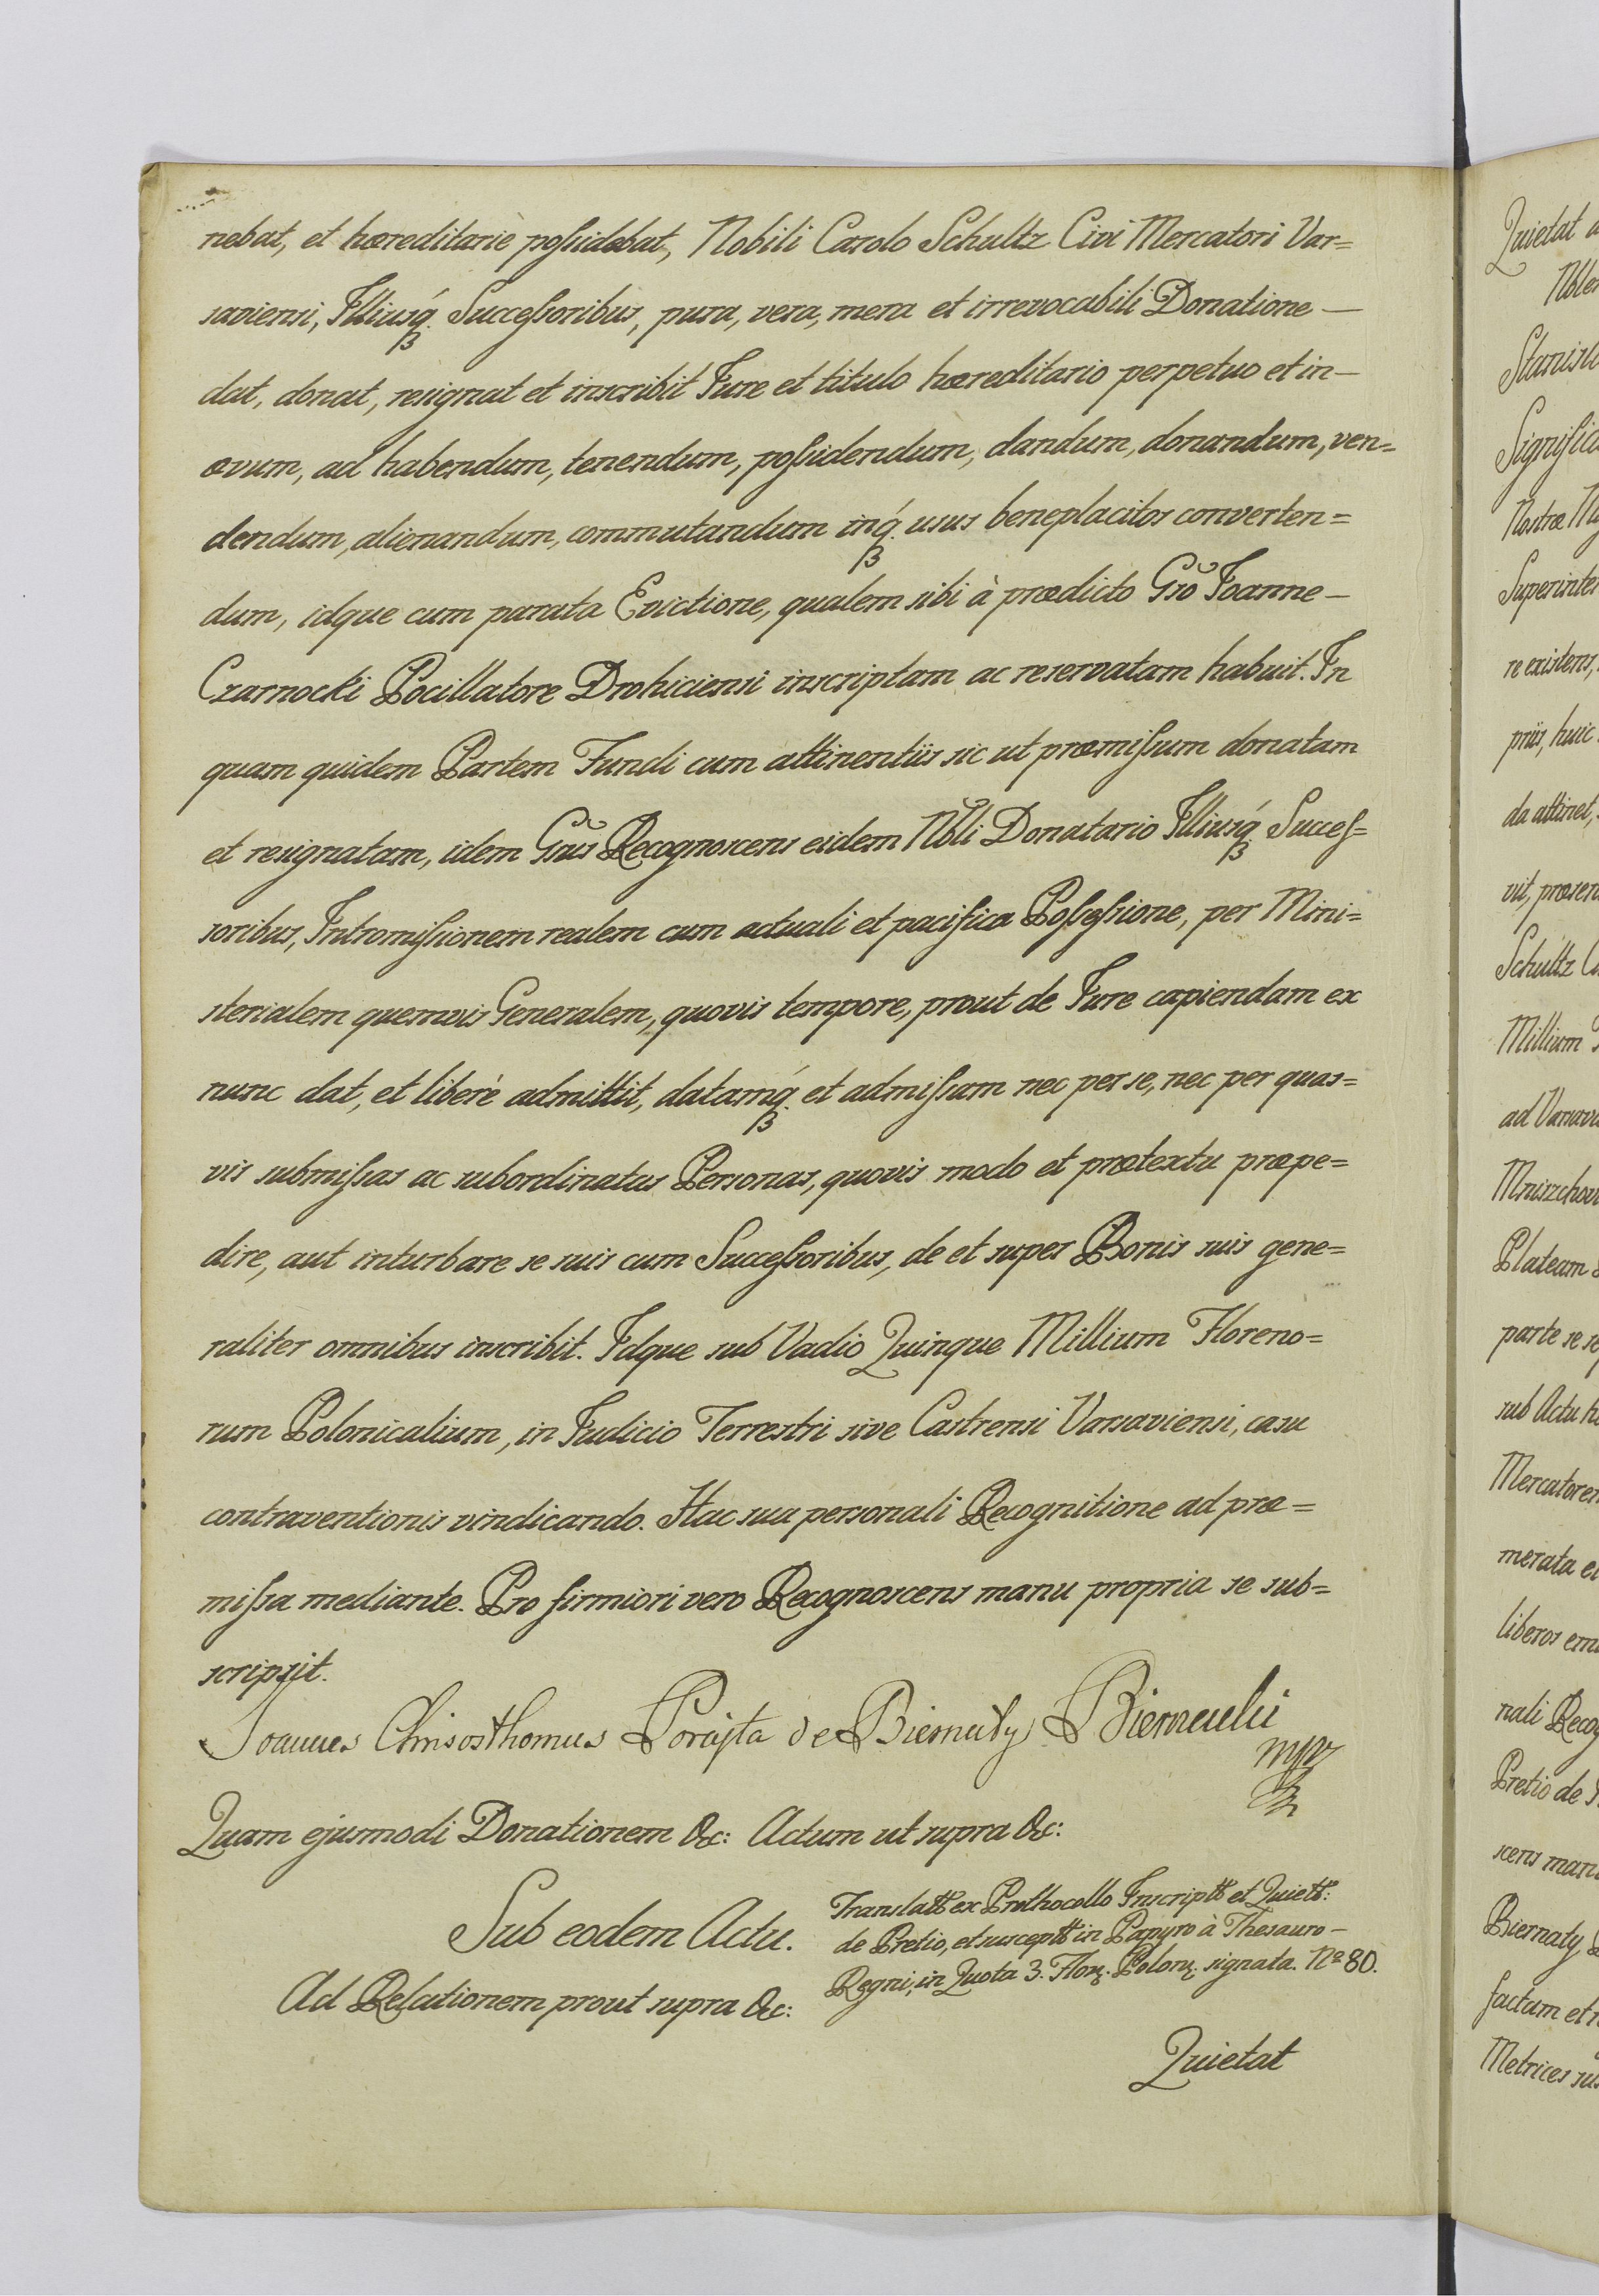 nebat, et hæreditariè poſsidebat, Nobili Carolo Schultz Civi Mercatori Var=
saviensi, Illiusq́. Succeſsoribus, pura, vera, mera et irrevocabili Donatione —
dat, donat, resignat et inscribit Jure et titulo hæreditario perpetuo et in—
ævum, ad habendum, tenendum, poſsidendum, dandum, donandum, ven=
dendum, alienandum, commutandum inq́. usus beneplacitos converten=
dum, idque cum parata Evictione, qualem sibi à prædicto Grõ Joanne —
Czarnocki Pocillatore Drohiciensi inscriptam ac reservatam habuit. In
quam quidem Partem Fundi cum attinentiis sic ut præmiſsum donatam
et resignatam, idem Grũs Recognoscens eidem Nbli Donatario Illiusq́ Succeſ=
soribus, Intromiſsionem realem cum actuali et pacifica Poſseſsione, per Mini=
sterialem quemvis Generalem, quovis tempore, prout de Jure capiendam ex
nunc dat, et liberè admittit, datamq́. et admiſsam nec per se, nec per quas=
vis submiſsas ac subordinatas Personas, quovis modo et prætextu præpe=
dire, aut inturbare se suis cum Succeſsoribus, de et super Bonis suis gene=
raliter omnibus inscribit. Idque sub Vadio Quinque Millium Floreno=
rum Polonicalium, in Judicio Terrestri sive Castrensi Varsaviensi, casu
contraventionis vindicando. Hac sua personali Recognitione ad præ=
miſsa mediante. Pro firmiori vero Recognoscens manu propria se sub=
scripsit.
Joannes Chrisosthomus Porajta de Biernaty Biernacki
mp
Quam ejusmodi Donationem &c: Actum ut supra &c:
Sub eodem Actu.
Translatt ex Prothocollo Inscriptt et Quiett:
de Pretio, et susceptt in Papyro à Thesauro —
Regni, in Quota 3. Flor. Polon. signata. Nº 80.
Ad Relationem prout supra &c:
Quietat
Quietat
Stanisl
Significa
Nostræ
Superinten
re existens,
priis, huic
da attinet,
vit, præsen
Schultz
Millium
ad Varsavi
Mniszchov
Plateam
parte se se
sub Actu h
Mercatorem
merata et
liberos em
nali Recog
Pretio de
scens man
Biernaty
factum et
Metrices